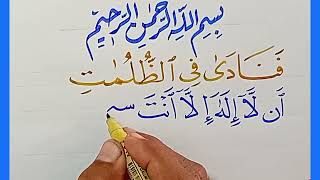 بِسْمِ اللهِ الرَّحْمٰنِ الرَّحِيْمِ
فَنَادَىٰ فِي الظُّلُمٰتِ
اَنْ لَّآ اِلٰهَ اِلَّآ اَنْتَ سـ